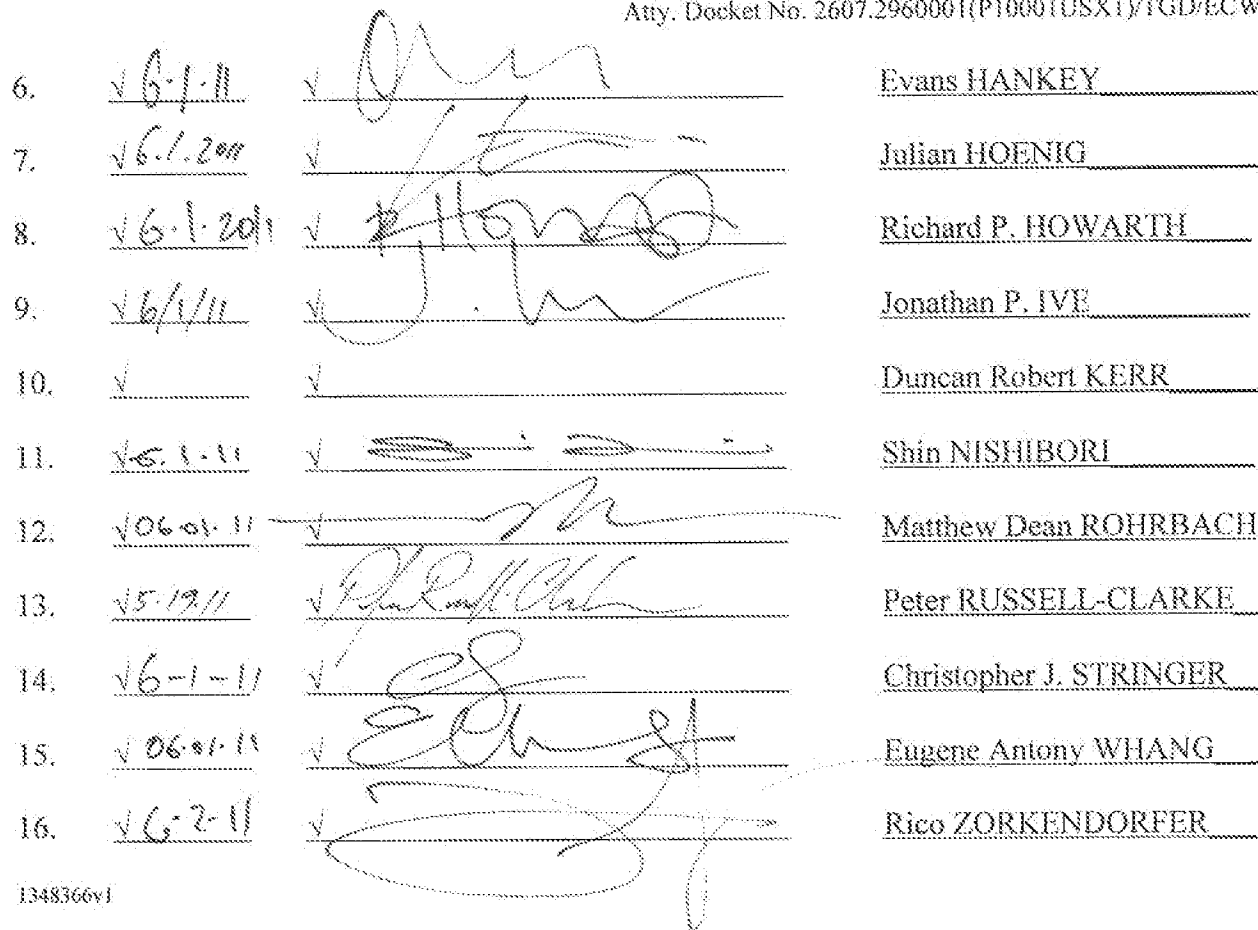 Atty. Docket No. 2607.2960001(P10001USX1)/TGD/ECW
6. √ 6-1-11 √ Evans HANKEY
7. √ 6.1.2011 √ Julian HOENIG
8. √ 6-1-2011 √ Richard P. HOWARTH
9. √ 6/1/11 √ Jonathan P. IVE
10. √ √ Duncan Robert KERR
11. √ 6.1.11 √ Shin NISHIBORI
12. √ 06.01.11 √ Matthew Dean ROHRBACH
13. √ 5.19.11 √ Peter RUSSELL-CLARKE
14. √ 6-1-11 √ Christopher J. STRINGER
15. √ 06.01.11 √ Eugene Antony WHANG
16. √ 6-2-11 √ Rico ZORKENDORFER
1348366v1